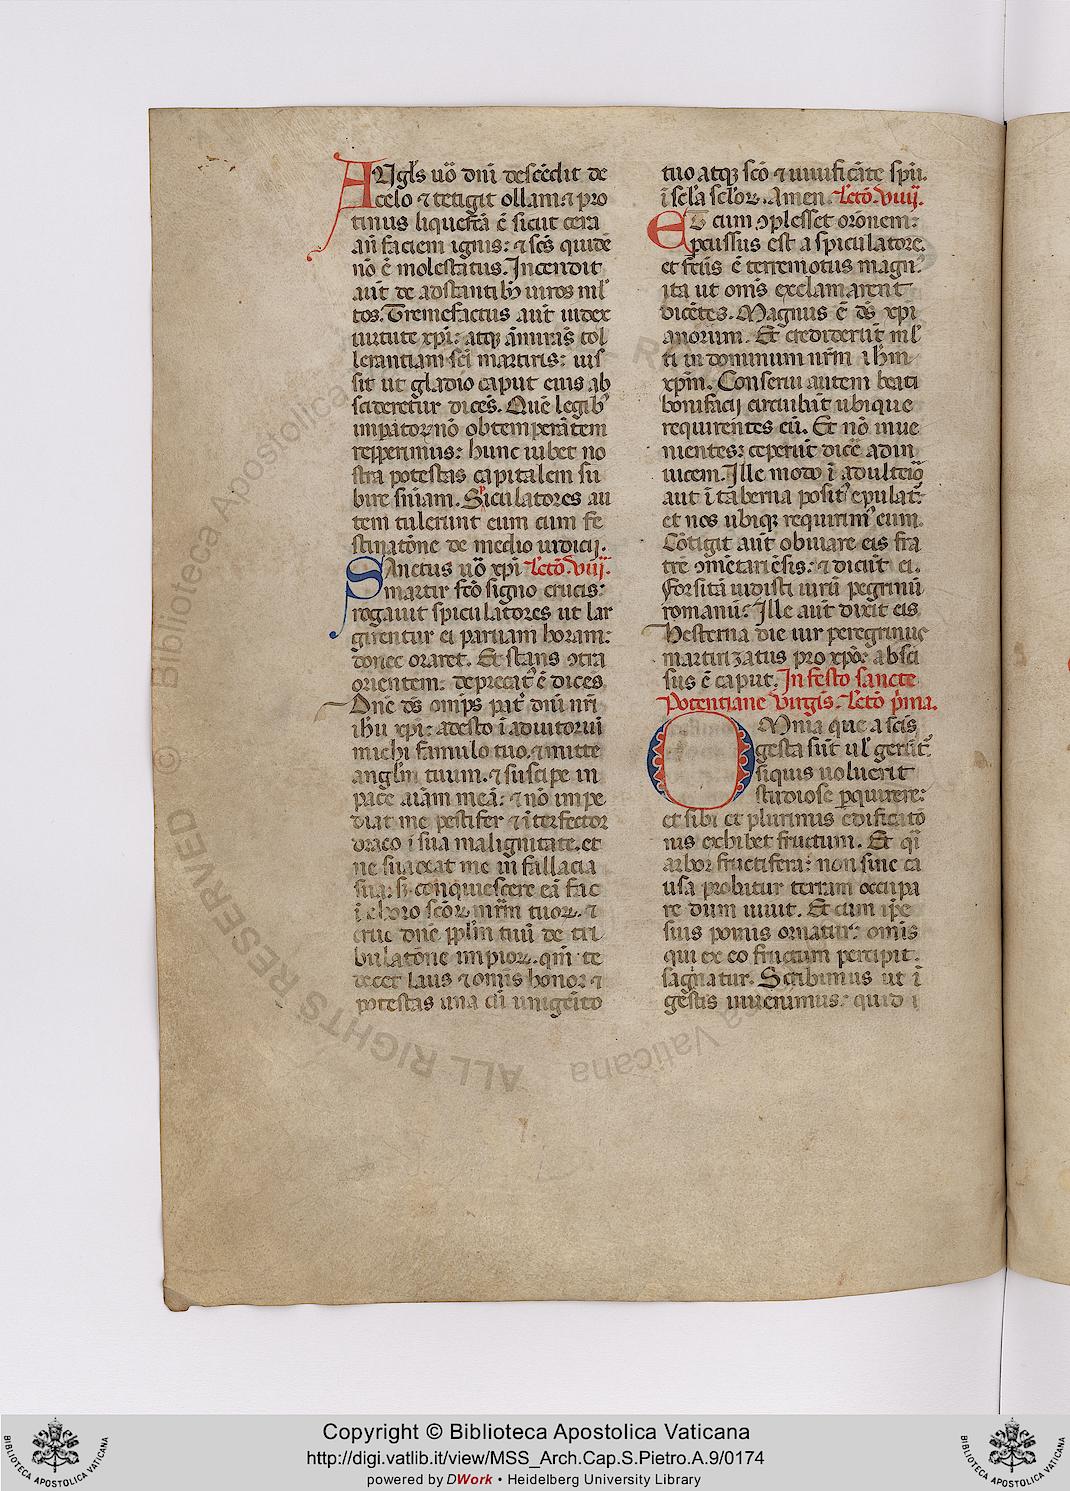 Angl's uo dni descedit de
celo & tetigit ollam: & pro
tinus liquefca e sicut cera
an faciem ignis: & scs quide
no e molestatus. Incendit
aut de adstantib; uiros ml'
tos. Tremefactus aut iudex
uirtute xpi: atq; amiras tol
lerantiam sci martiris: ius
sit ut gladio caput eius ab
scideretur dices. Que legib'
impator no obtemperatem
repperimus: hunc iubet no
stra potestas capitalem su
bire sniam. Spiculatores au
tem tulerunt eum cum fe
stinatone de medio iudicij.
Sanctus uo xpi Lecto. viij.
martir fco signo crucis:
rogauit spiculatores ut lar
girentur ei paruam horam:
donec oraret. Et stans ɔtra
orientem: deprecat' e dices
Dne ds omps pat' dni nri
ihu xpi: adesto i adiutoriu
michi famulo tuo. & mitte
anglm tuum. & suscipe in
pace aiam mea: & no impe
diat me pestifer & iterfector
draco i sua malignitate. et
ne suadeat me in fallacia
sua: s; conquiescere ea fac
i choro scor mrm tuor. &
erue dne pplm tuu de tri
bulatone impior. qm te
decet laus & omis honor &
potestas una cu unigeito
tuo atq; sco & uiuificate spu.
i scla sclor. Amen. Lecto. viiij.
Et cum ɔplesset oronem:
pcussus est a spiculatore.
et fcus e terremotus magn'
ita ut oms exclamarent
dicetes. Magnus e ds xpi
anorum. Et crediderut ml'
ti in dominum nrm ihm
xpm. Conserui autem beati
bonifacij circuibat ubique
requirentes eu. Et no inue
nientes: ceperut dice adin
uicem. Ille modo i adulterio
aut i taberna posit' epulat':
et nos ubiq; requirim' eum.
Cotigit aut obuiare eis fra
tre ɔmetariesis: & dicut ei.
Forsita uidisti uiru pegrinu
romanu: Ille aut dixit eis
Hesterna die uir peregrinus
martirizatus pro xpo: absci
sus e caput. In festo sancte
Potentiane virgis. Lecto pma.
Omnia que a scis
gesta sut ul' gerut'
siquis uoluerit
studiose pquirere:
et sibi et plurimis edificato
nis exhibet fructum. Et qi
arbor fructifera: non sine ca
usa probatur terram occupa
re dum uiuit. Et cum ipe
suis pomis ornatur: omis
qui ex eo fructum percipit.
saginatur. Scribimus ut i
gestis inuenimus: quid i
© Biblioteca Apostolica Vaticana
ALL RIGHTS RESERVED
Copyright © Biblioteca Apostolica Vaticana
http://digi.vatlib.it/view/MSS_Arch.Cap.S.Pietro.A.9/0174
powered by DWork • Heidelberg University Library
BIBLIOTECA APOSTOLICA VATICANA
BIBLIOTECA APOSTOLICA VATICANA